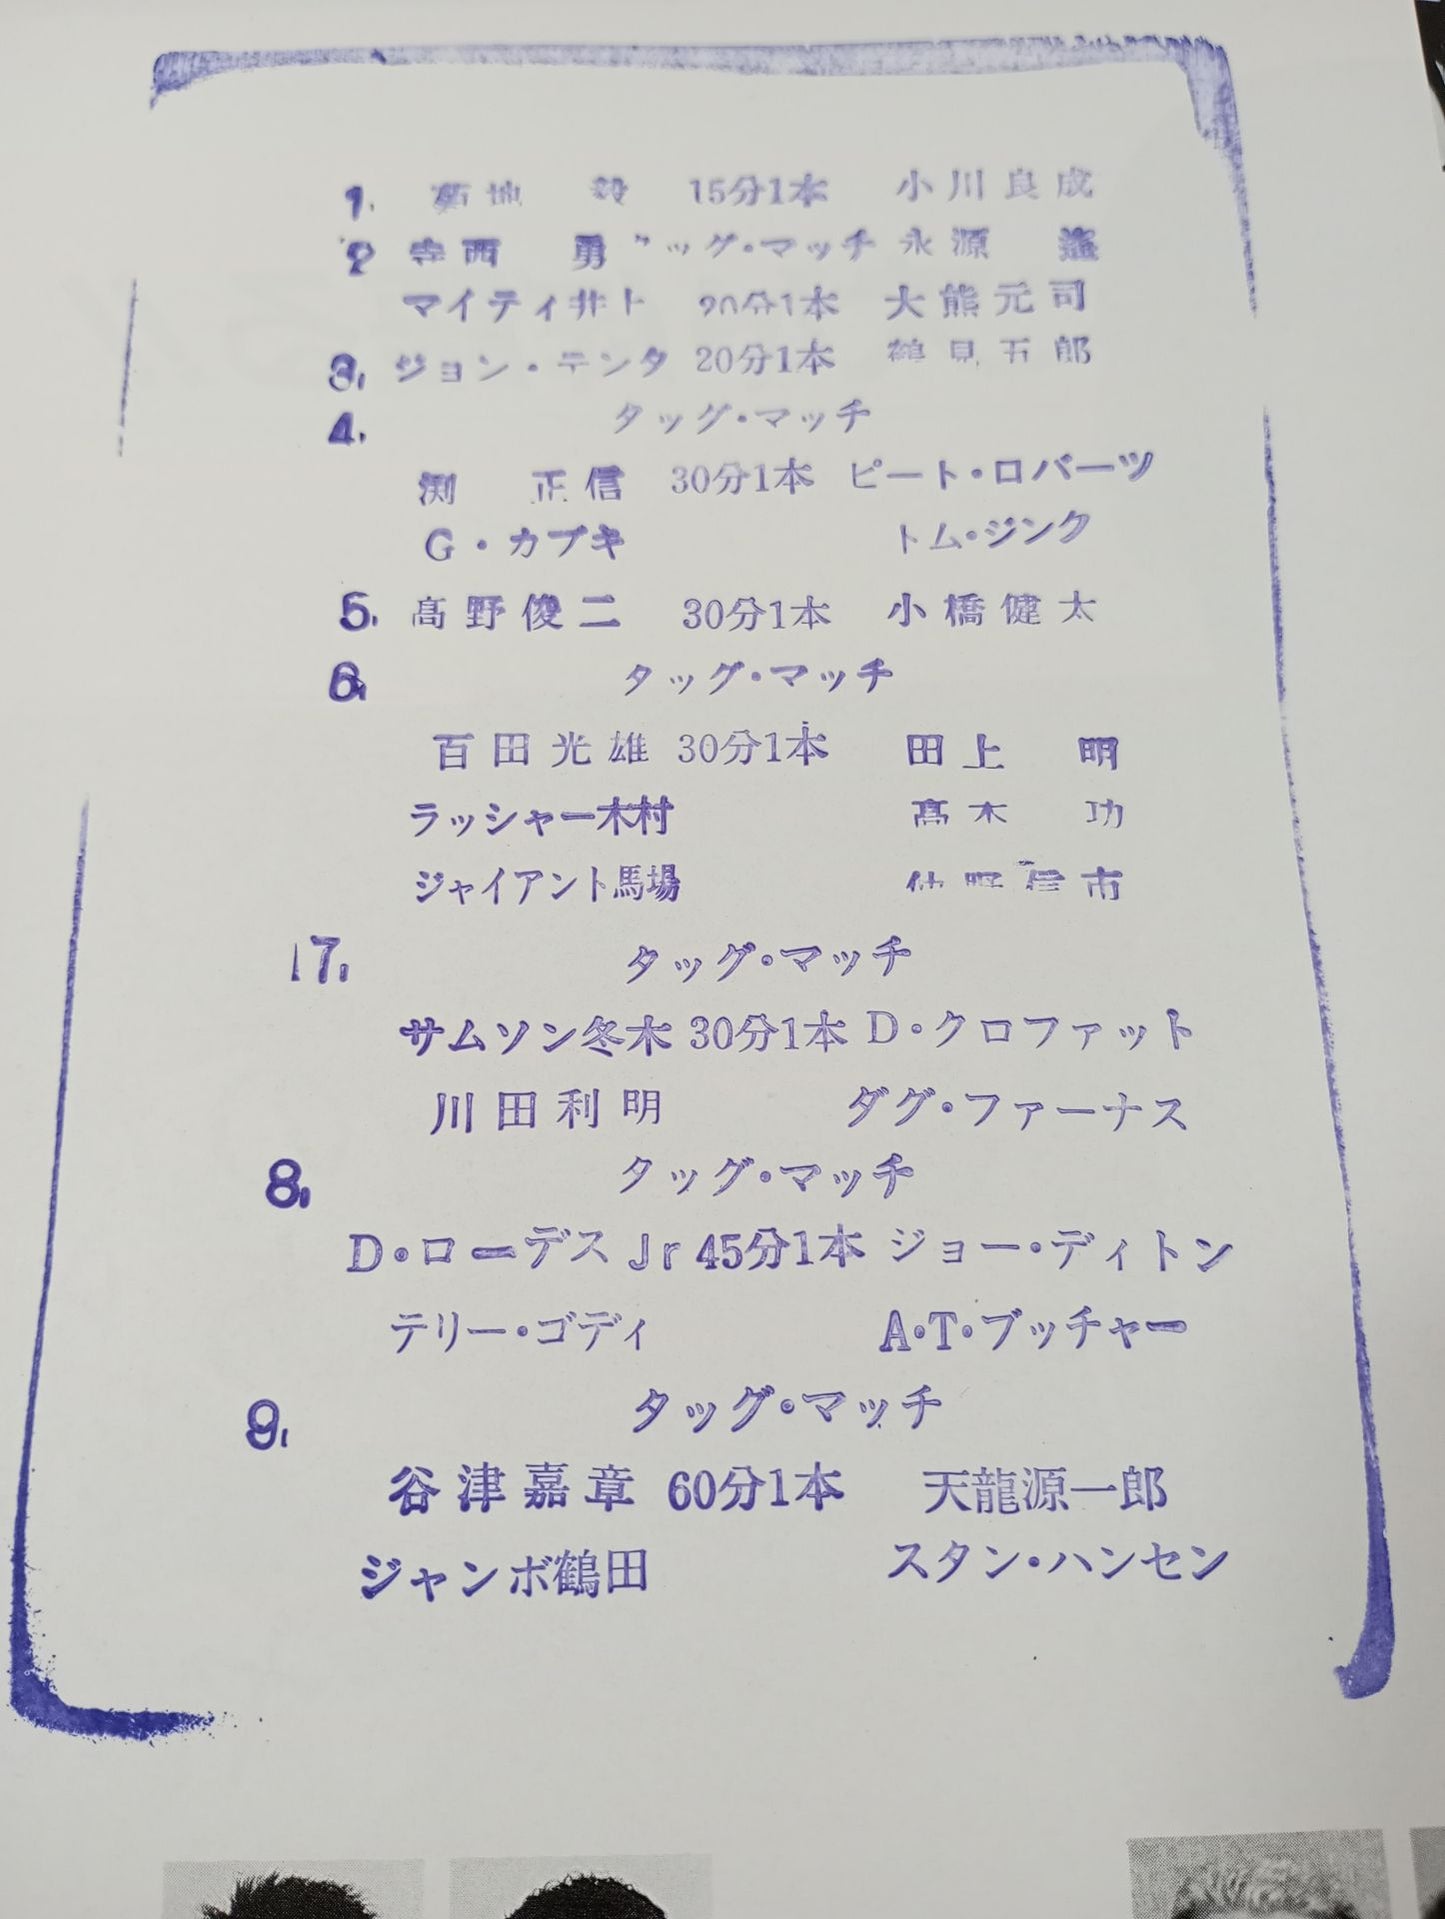 1. 菊地 毅 15分1本 小川良成
2 寺西 勇 タッグ・マッチ 永源 遙
マイティ井上 20分1本 大熊元司
3. ジョン・テンタ 20分1本 鶴見五郎
4. タッグ・マッチ
渕 正信 30分1本 ピート・ロバーツ
G・カブキ トム・ジンク
5. 髙野俊二 30分1本 小橋健太
6. タッグ・マッチ
百田光雄 30分1本 田上 明
ラッシャー木村 髙木 功
ジャイアント馬場 仲野信市
7. タッグ・マッチ
サムソン冬木 30分1本 D・クロファット
川田利明 ダグ・ファーナス
8. タッグ・マッチ
D・ローデスJr 45分1本 ジョー・ディトン
テリー・ゴディ A・T・ブッチャー
9. タッグ・マッチ
谷津嘉章 60分1本 天龍源一郎
ジャンボ鶴田 スタン・ハンセン